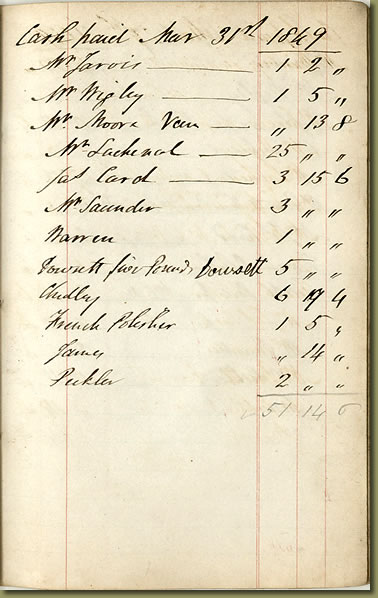 Cash paid Mar 31st 1849
Mr Jarvis — 1 2 „
Mr Wigley — 1 5 „
Mr Moore Van — „ 13 8
Mr Lachenal — 25 „ „
Jas Card — 3 15 6
Mr Saunder 3 „ „
Warren 1 „ „
Dowsett five Pounds Dowsett 5 „ „
Chidley 6 19 4
French Polisher 1 5 „
James „ 14 „
2 „ „
51 14 6